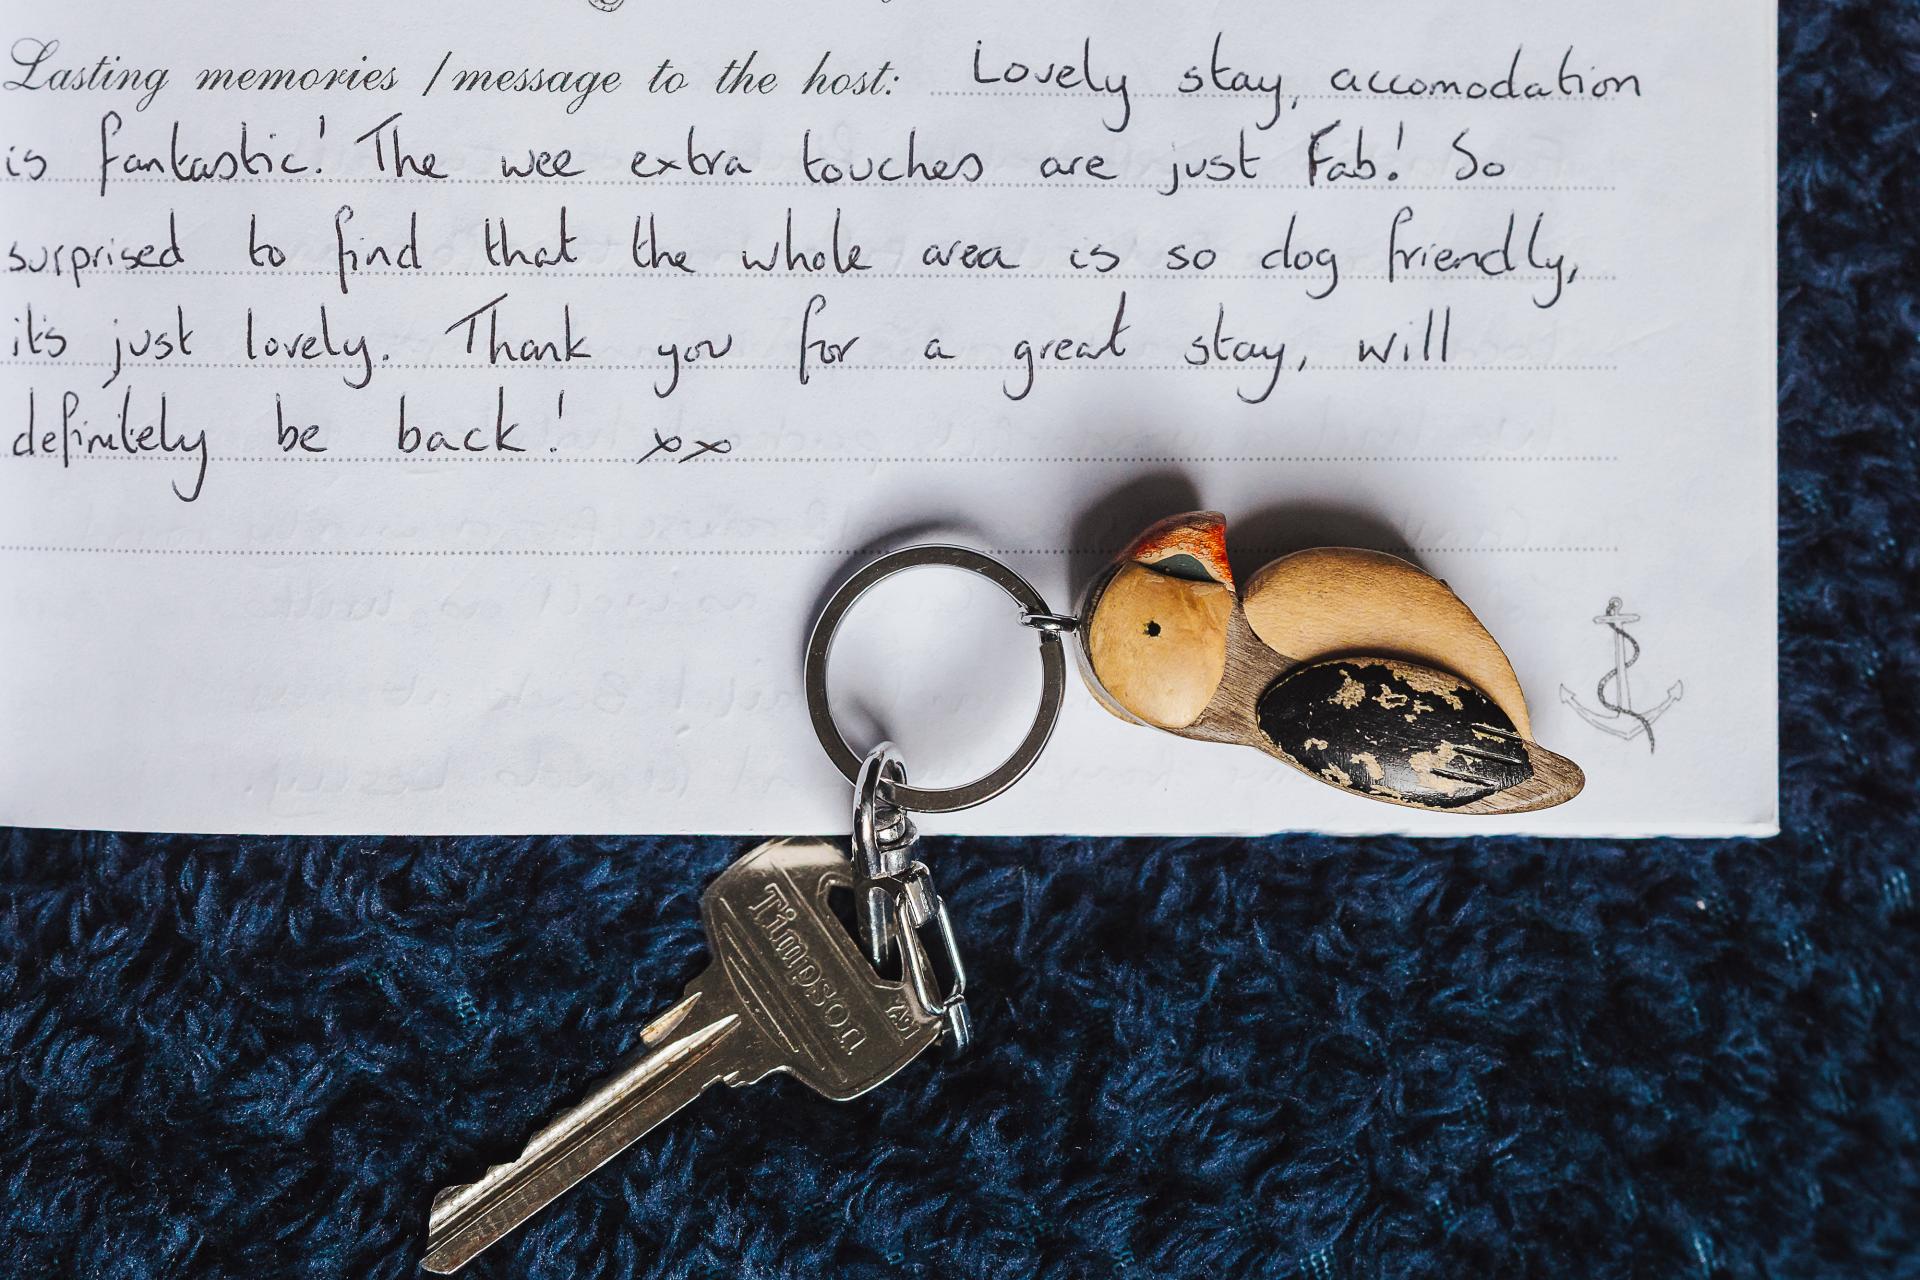 Lasting memories / message to the host: Lovely stay, accomodation
is fantastic! The wee extra touches are just Fab! So
surprised to find that the whole area is so dog friendly,
it's just lovely. Thank you for a great stay, will
definitely be back! xx
Timpson